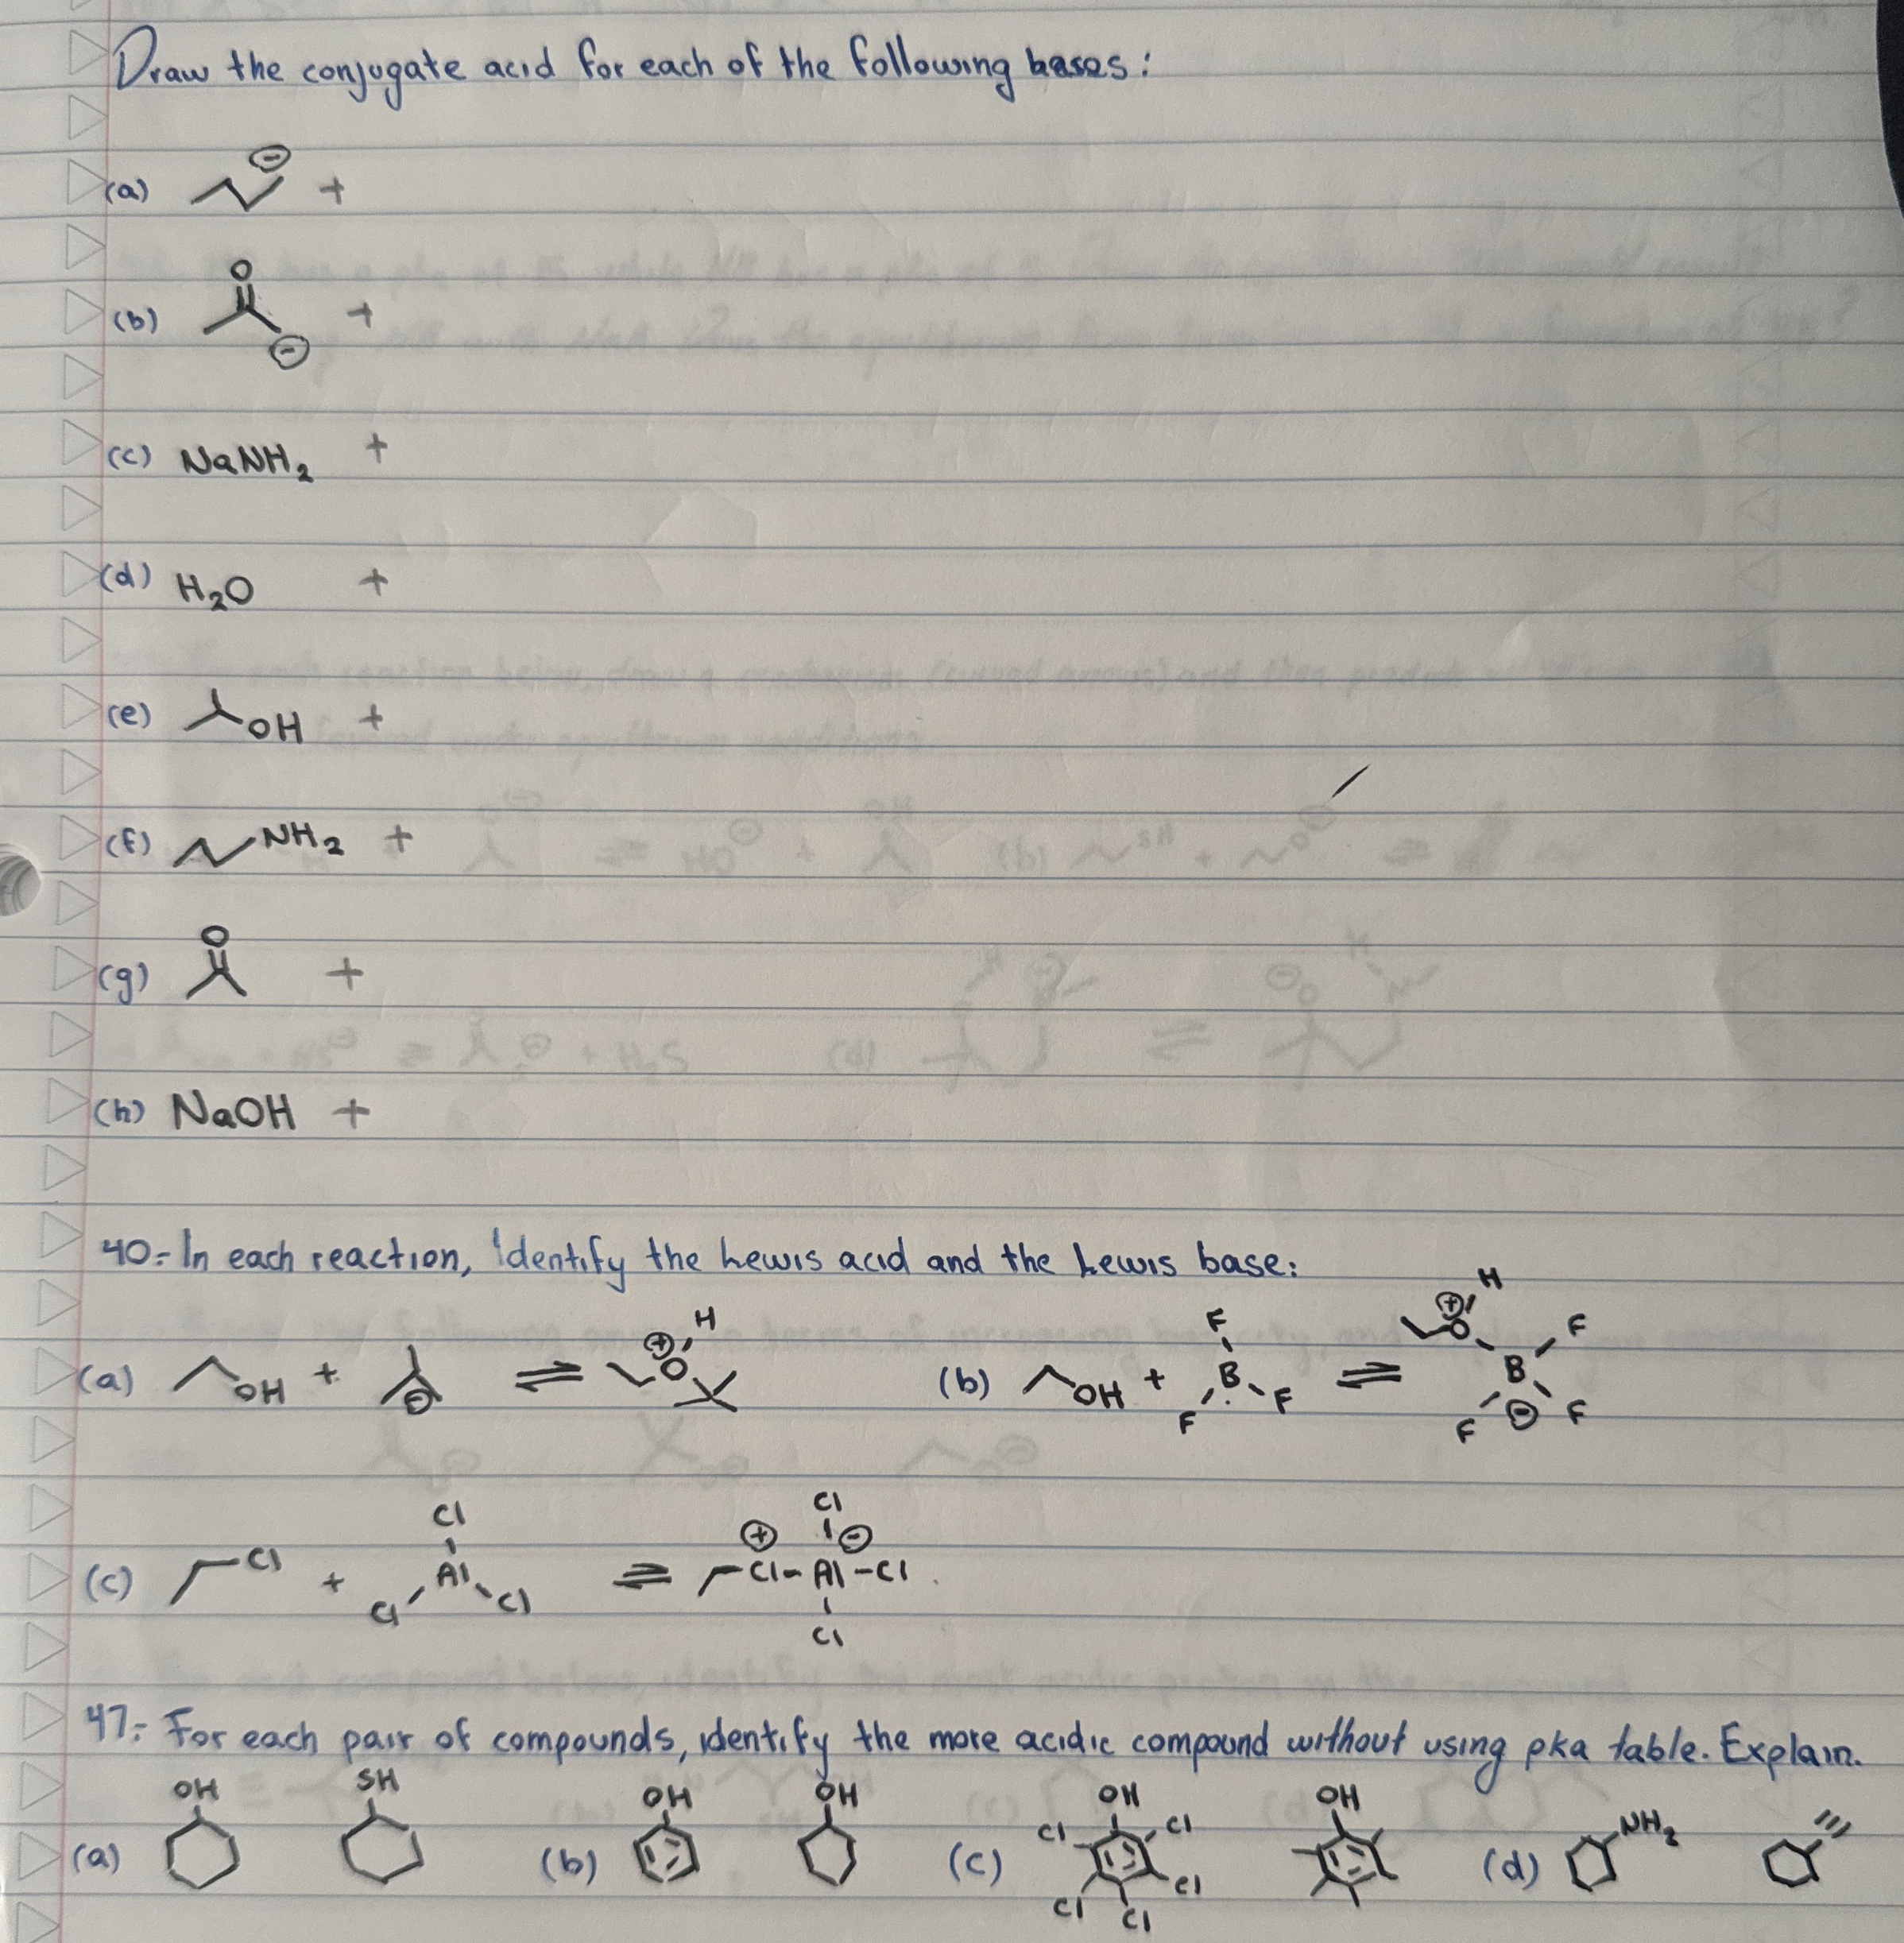 Draw the conjugate acid for each of the following bases:
(a) ⊖ +
(b) O ⊖ +
(c) NaNH2 +
(d) H2O +
(e) OH +
(f) NH2 +
(g) O +
(h) NaOH +
40.- In each reaction, identify the Lewis acid and the Lewis base:
(a) OH + ⊖ ⇌ ⊕ O H (b) OH + F B F F ⇌ ⊕ O H B F F F ⊖
(c) Cl + Cl Al Cl Cl ⇌ ⊕ Cl - Al - Cl Cl Cl ⊖
47.- For each pair of compounds, identify the more acidic compound without using pka table. Explain.
(a) OH SH (b) OH OH (c) OH Cl Cl Cl Cl Cl OH (d) NH2